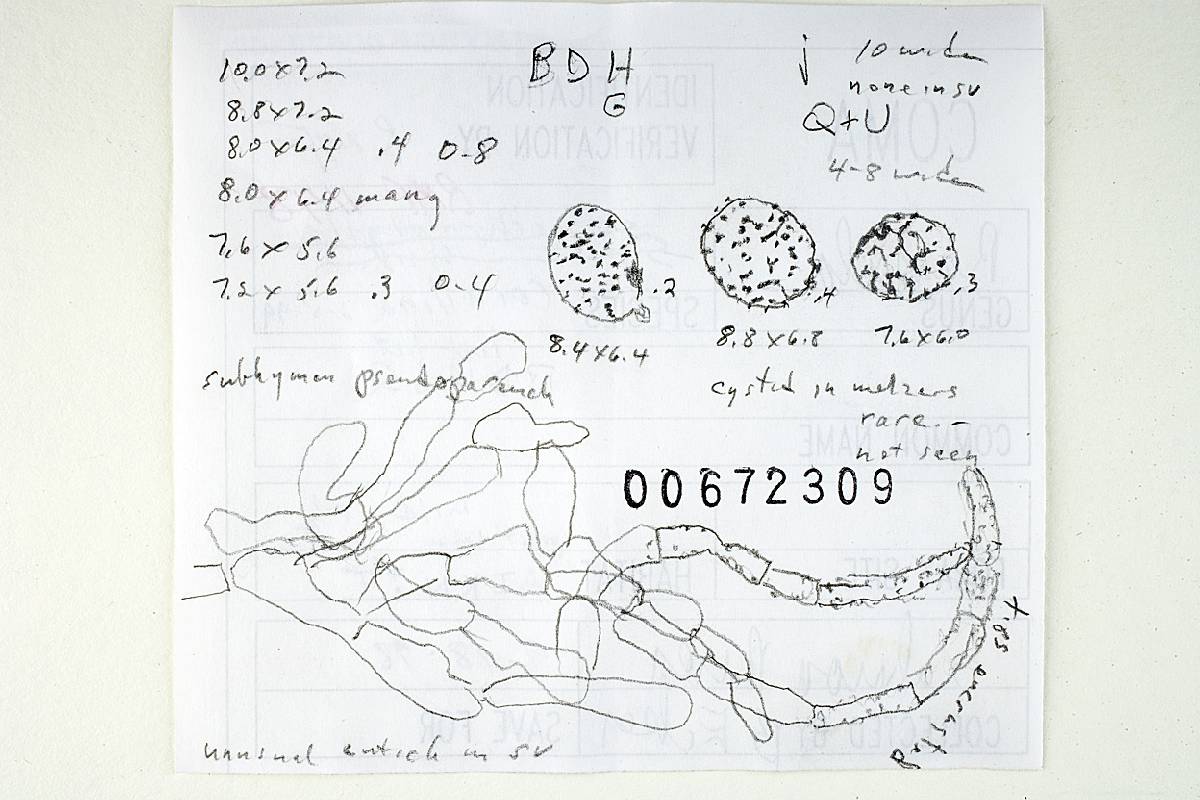 10.0 x 7.2
8.8 x 7.2
8.0 x 6.4 .4 0-8
8.0 x 6.4 many
7.6 x 5.6
7.2 x 5.6 .3 0-4
BDH
G
j 10 wide
none in sv
Q+U
4-8 wide
.2
.4
.3
8.4 x 6.4
8.8 x 6.8
7.6 x 6.0
subhymen pseudoparench
cystid in melzers
rare -
not seen
00672309
encrusted
unusual cutich in sv
COMA
IDENTIFICATION
VERIFICATION BY
GENUS
SPECIES
COMMON NAME
SITE
HAB
COLLECTED BY
SAVE FOR